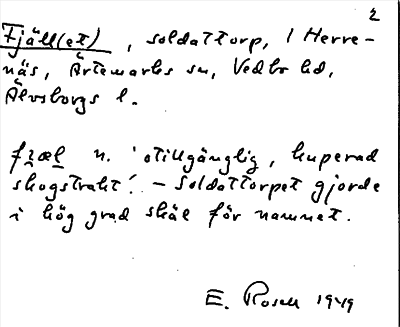 2
Fjäll(et), soldattorp, i Herre-
näs, Ärtemarks sn, Vedbo hd,
Älvsborgs l.
fzæl n. 'otillgänglig, kuperad
skogstrakt'. – Soldattorpet gjorde
i hög grad skäl för namnet.
E. Rosell 1949